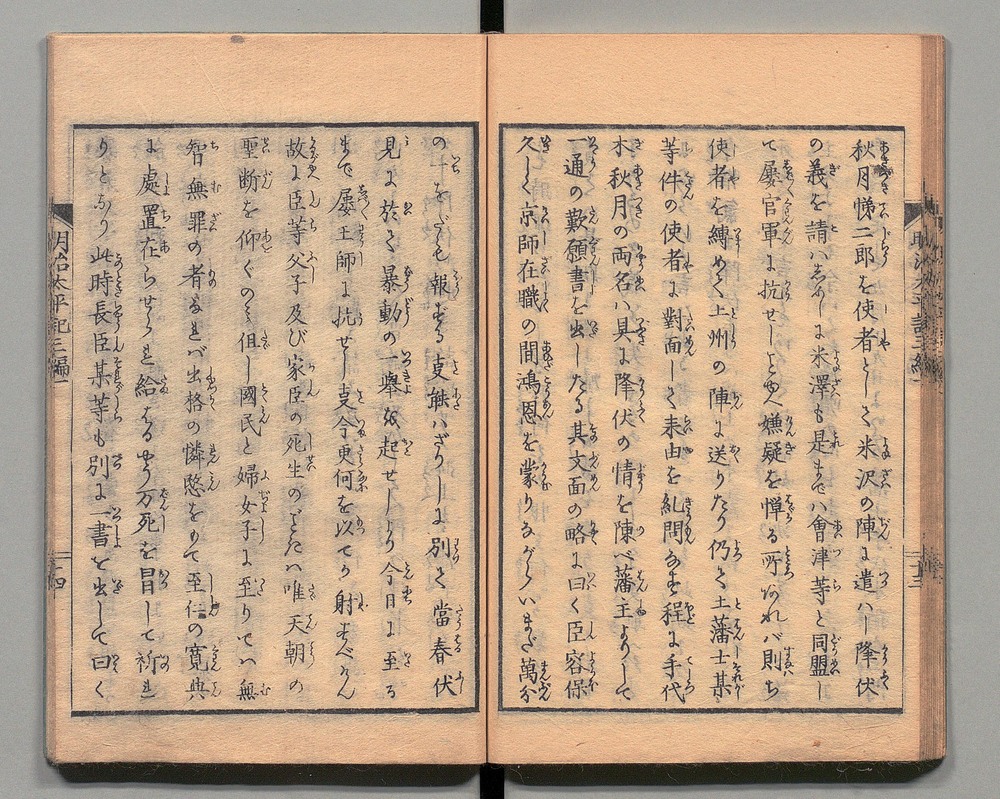 秋月悌二郎を使者として米沢の陣に遣ハし降伏
の義を請ハしめしに米澤も是まで ハ會津等と同盟し
て屡官軍に抗せしと史嫌疑を憚る所あれバ則ち
使者を縛めて上州の陣に送りたり仍て土藩士某
等件の使者に對面して来由を糺問なせし程に手代
木秋月の両名ハ具に降伏の情を陳べ藩主よりして
一通の歎願書を出したる其文面の略に曰く臣容保
久しく京師在職の間鴻恩を蒙りながらいまだ萬分
の一をだも報ずる事能ハざりしに別て當春伏
見に於て暴動の一擧を起せしより今日に至る
まで屡王師に抗せし事今更何を以てか射すべけん
故に臣等父子及び家臣の死生のことハ唯天朝の
聖断を仰ぐのミ但し國民と婦女子に至りてハ無
智無罪の者なれバ出格の憐愍をもて至仁の寛典
に處置在らせられ給はるやう万死を冒して祈れ
りとなり此時長臣某等も別に一書を出して曰く
明治太平記三編一
十三
明治太平記三編一
十四